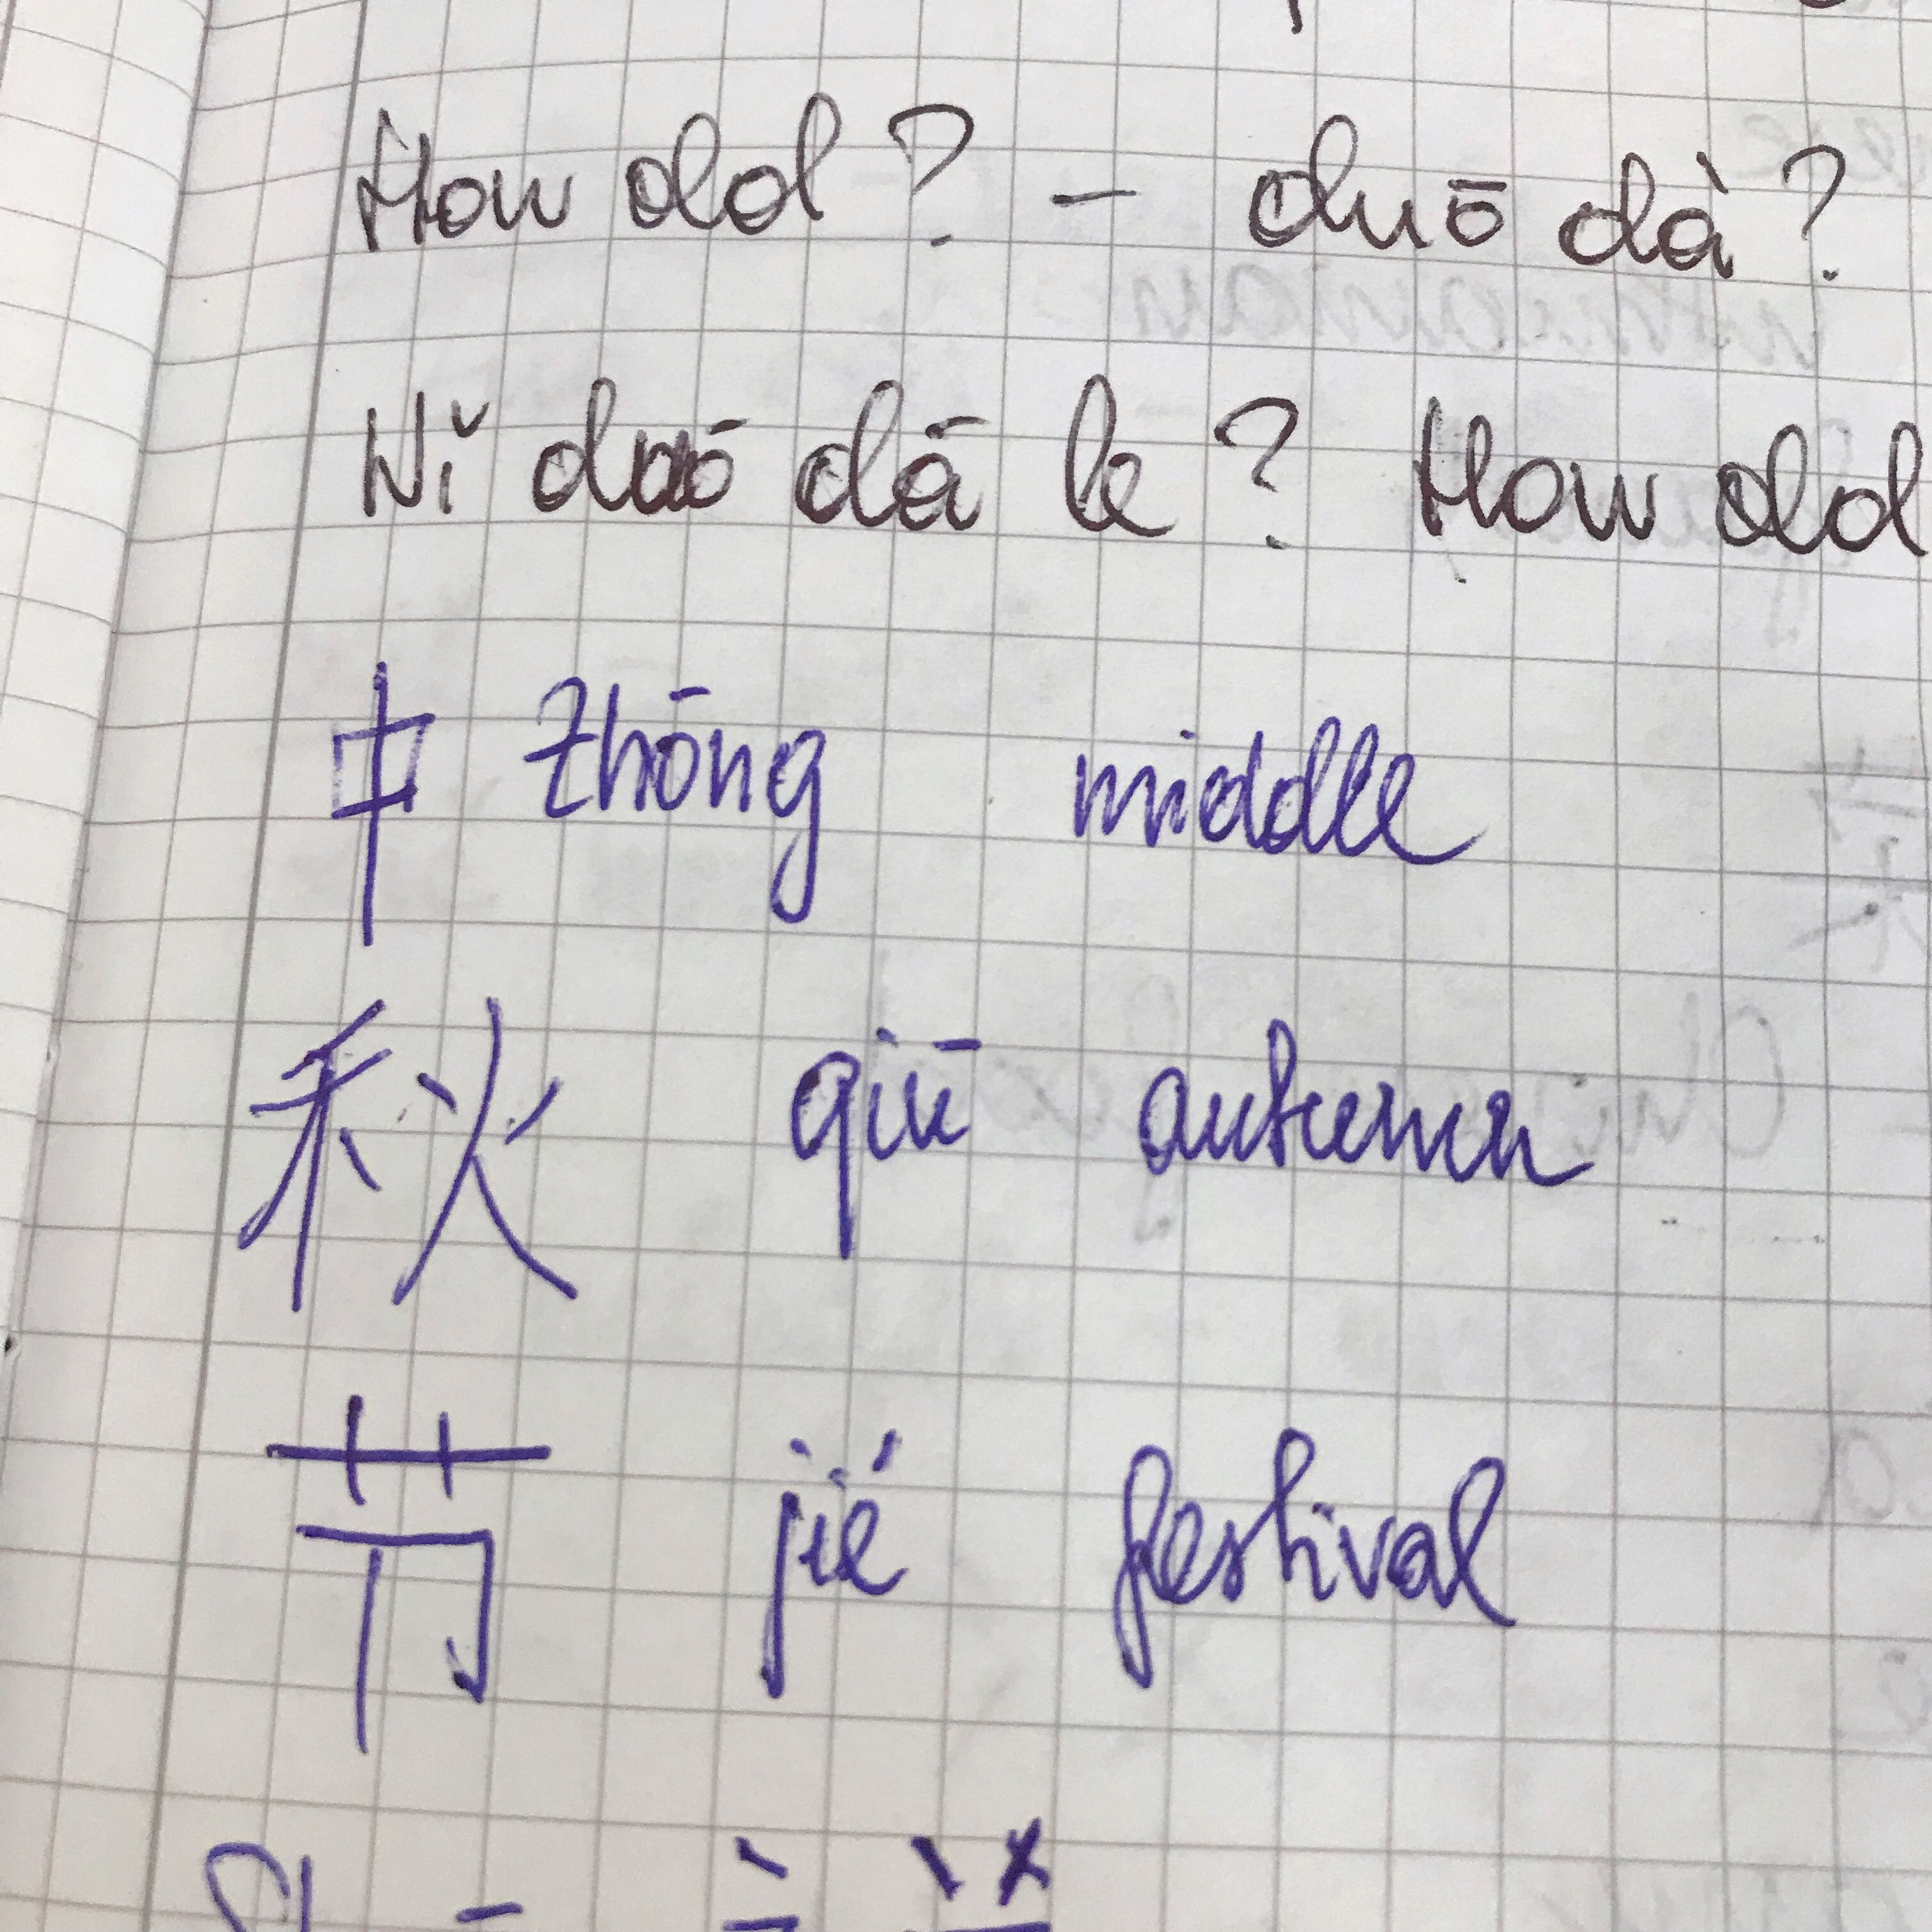 How old? - duō dà?
Nǐ duō dā le? How old
中 zhōng middle
秋 qiū autumn
节 jié festival